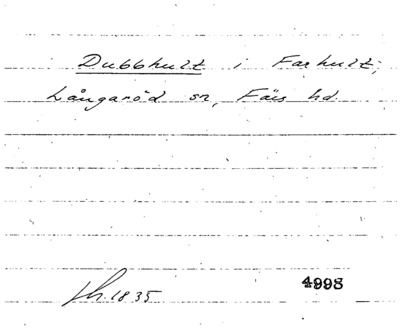 Dubbhult i Farhult,
Långaröd sn, Färs hd.
1835
4998